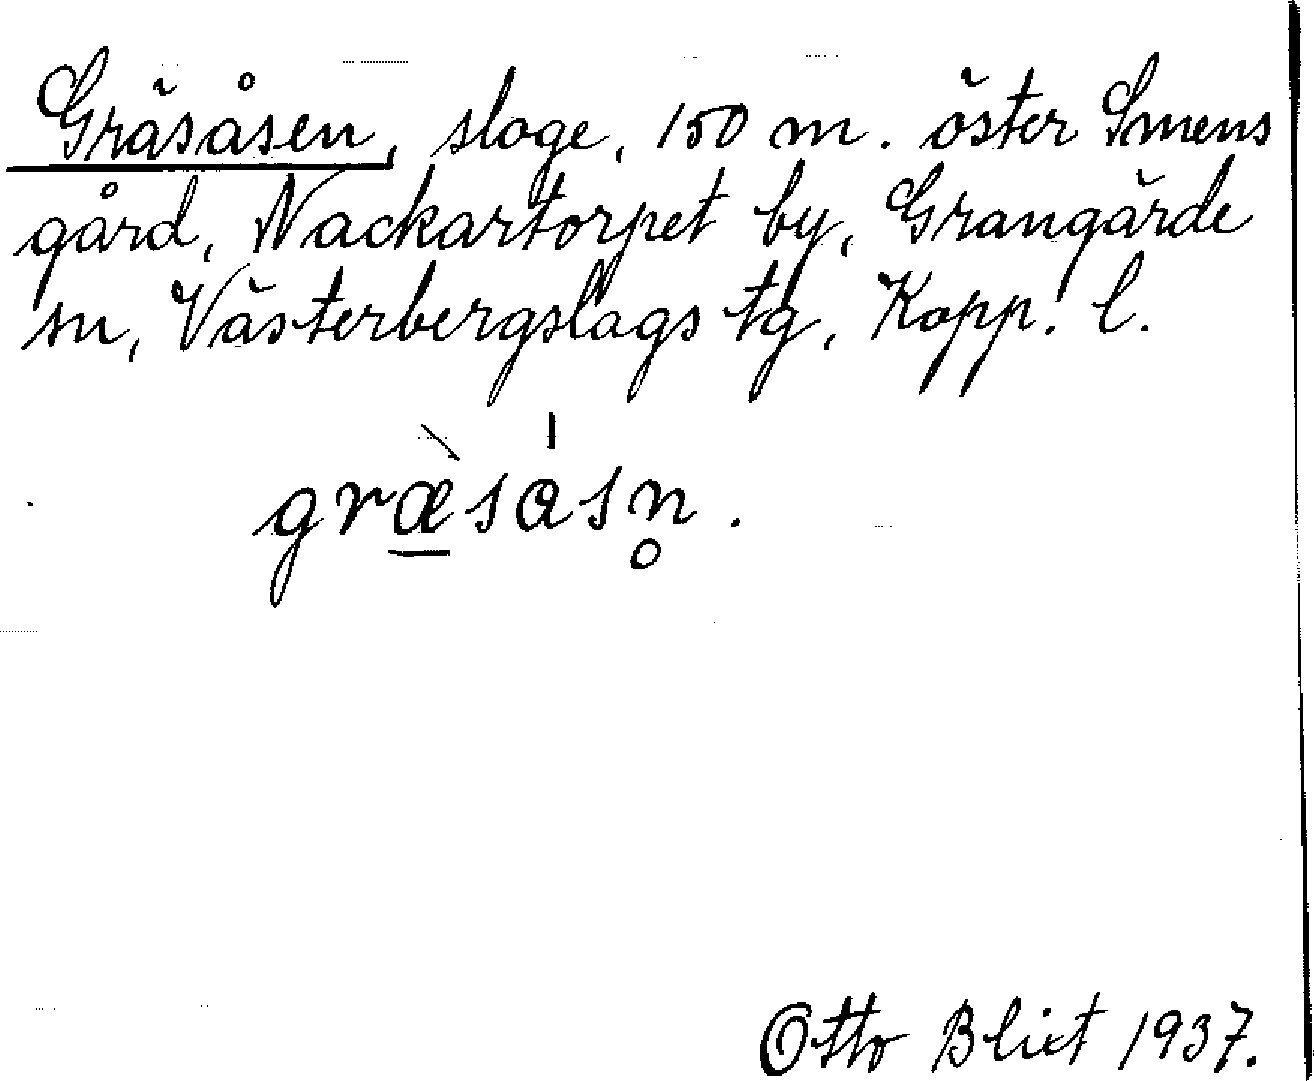 Gräsåsen, sloge, 150 m. öster Smens
gård, Nackartorpet by, Grangärde
sn, Västerbergslags tg, Kopp. l.
græ̲̀sɑ̍sn̥.
Otto Blixt 1937.